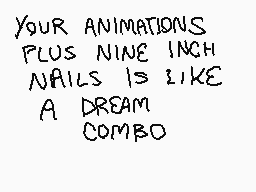 YOUR ANIMATIONS
PLUS NINE INCH
NAILS IS LIKE
A DREAM
COMBO